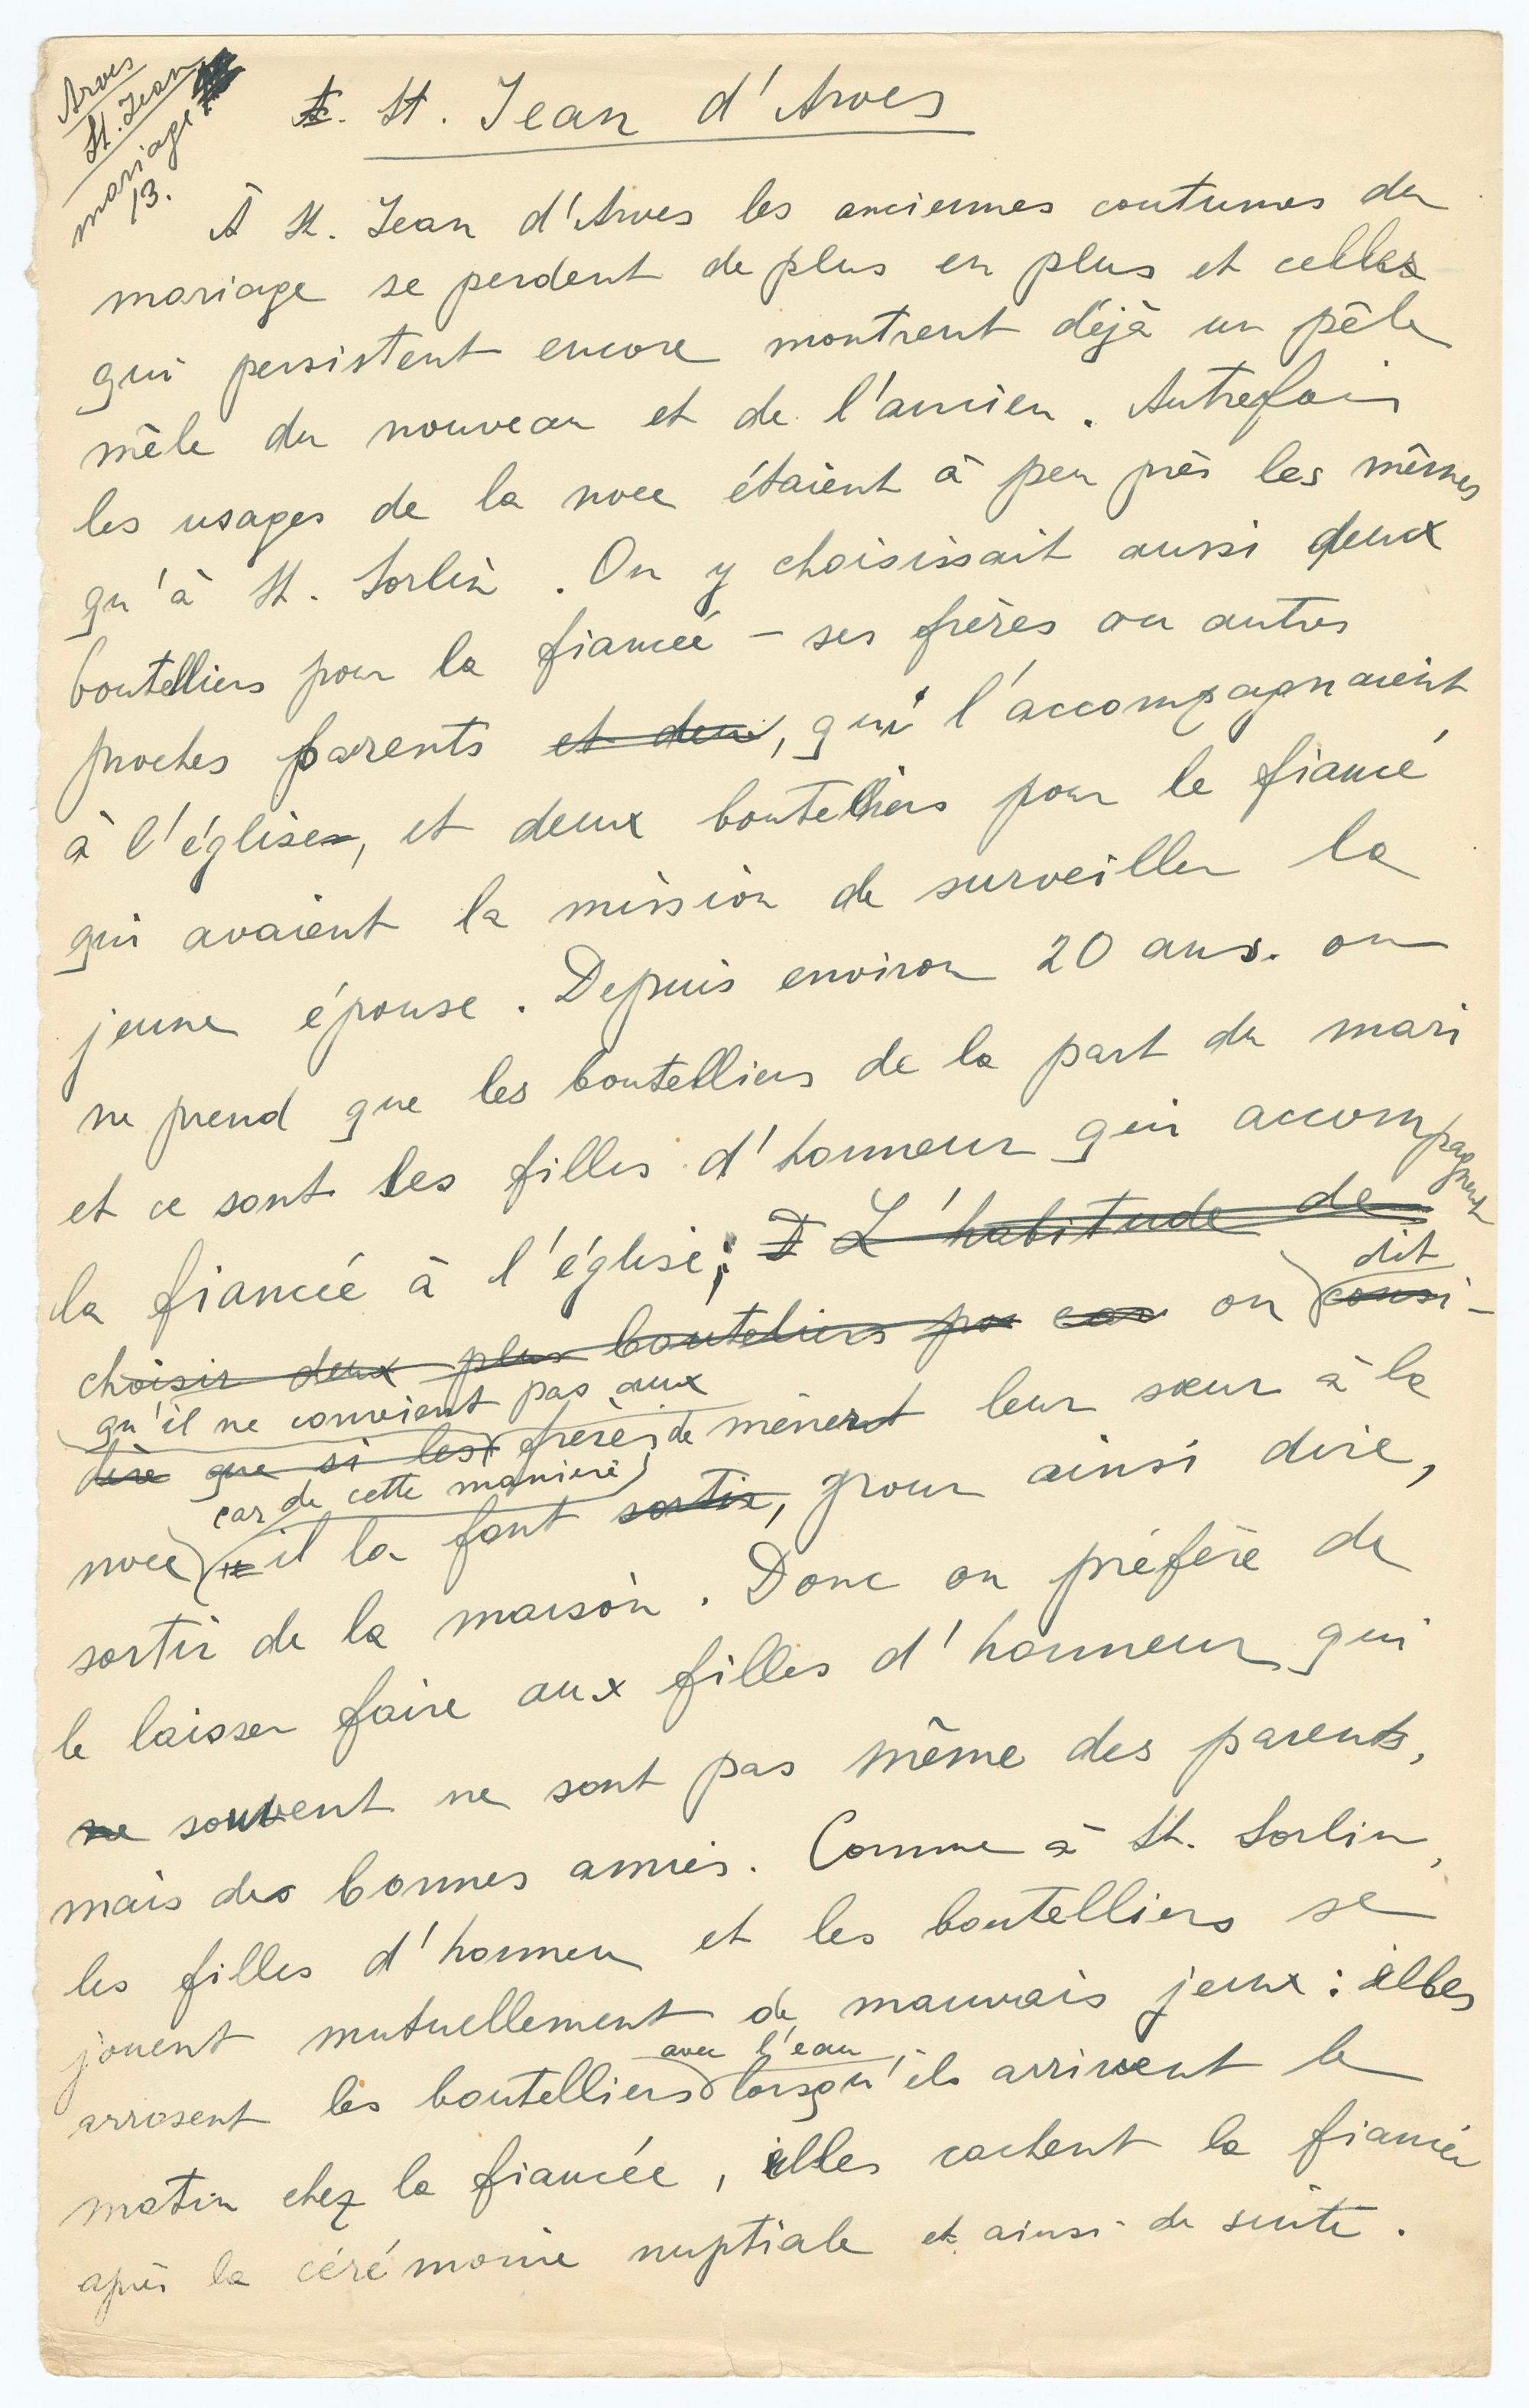 Arves
St. Jean
mariage
13.
St. Jean d'Arves
À St. Jean d'Arves les anciennes coutumes du
mariage se perdent de plus en plus et celles
qui persistent encore montrent déjà un pêle
mêle du nouveau et de l'ancien. Autrefois
les usages de la noce étaient à peu près les mêmes
qu'à St. Sorlin. On y choisissait aussi deux
boutelliers pour la fiancée – ses frères ou autres
proches parents et deux, qui l'accompagnaient
à l'église, et deux boutelliers pour le fiancé
qui avaient la mission de surveiller la
jeune épouse. Depuis environ 20 ans. on
ne prend que les boutelliers de la part du mari
et ce sont les filles d'honneur qui accompagnent
la fiancée à l'église; D L'habitude de
dit
choisir deux plus bouteliers po car on consi-
qu'il ne convient pas aux
dère que si les frères de mènent leur sœur à la
car de cette manière
noce il la font sortir, pour ainsi dire,
sortir de la maison. Donc on préfère de
le laisser faire aux filles d'honneur qui
ne souvent ne sont pas même des parents,
mais des bonnes amies. Comme à St. Sorlin,
les filles d'honneu et les boutelliers se
jouent mutuellement de mauvais jeux: elles
avec l'eau
arrosent les boutelliers lorsqu'ils arrivent le
matin chez la fiancée, elles cachent la fiancée
après la cérémonie nuptiale et ainsi de suite.